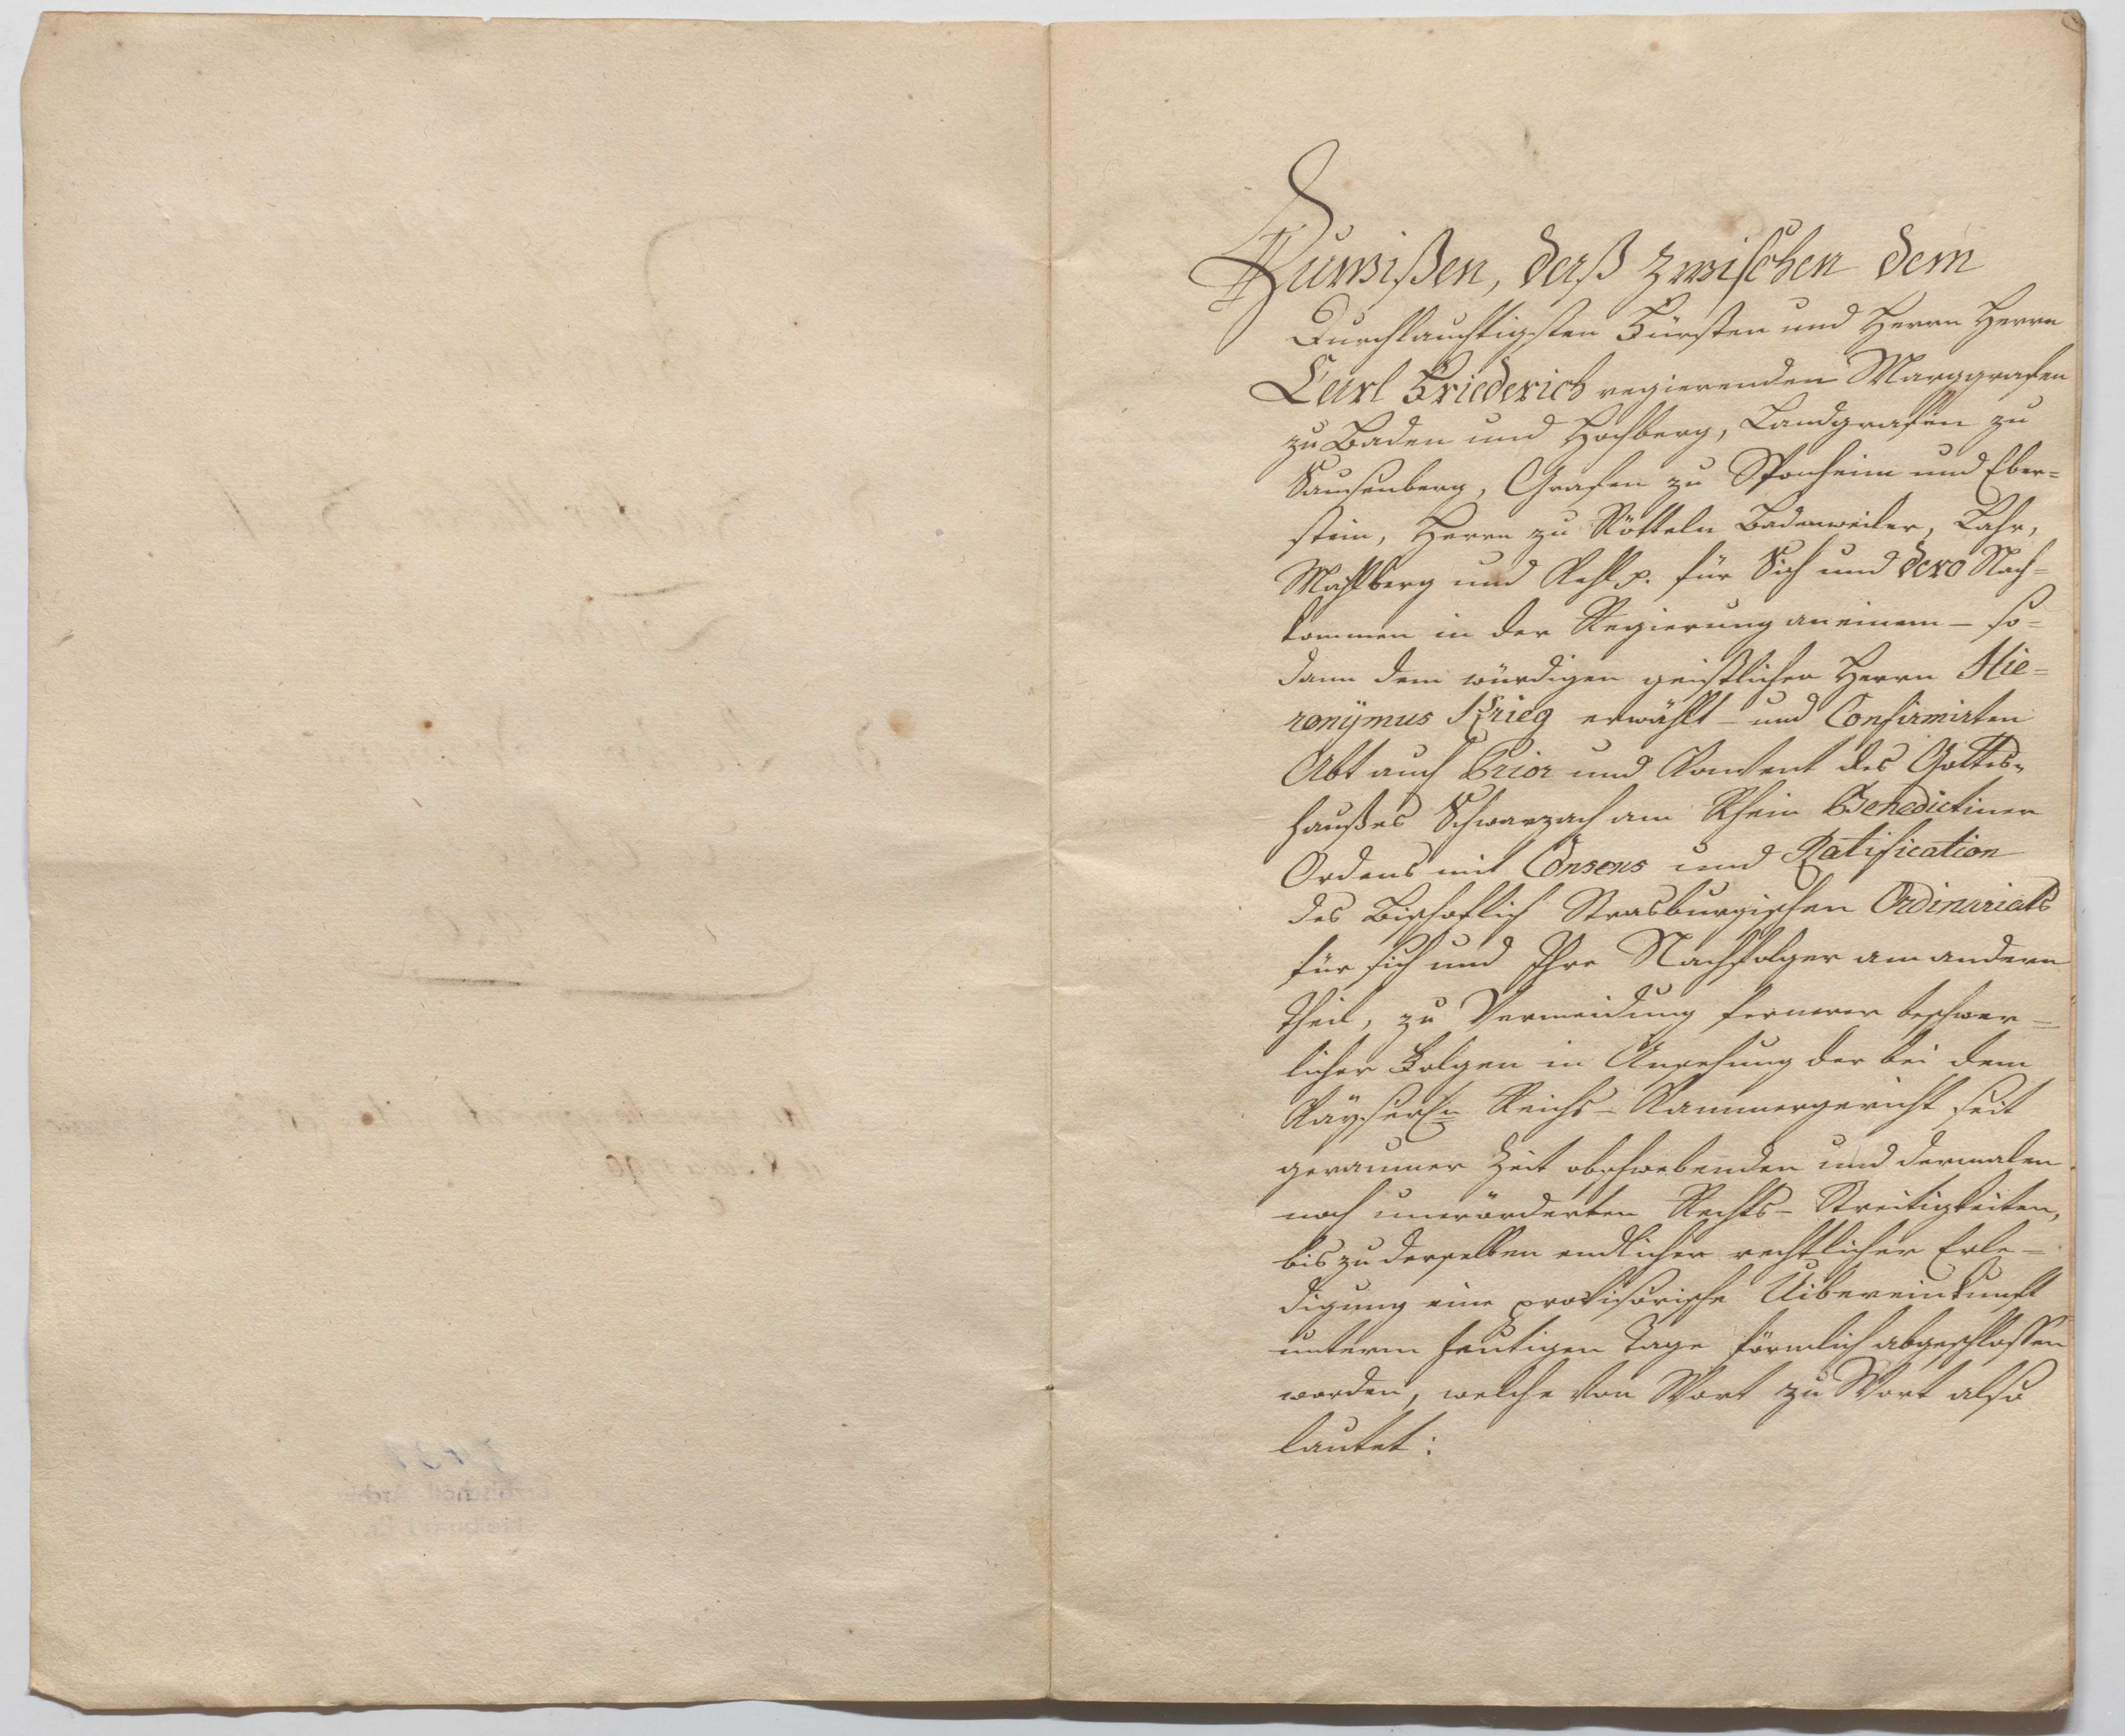 Zuwißen, daß zwischen dem
Durchlauchtigsten Fürsten und Herrn Herrn
Carl Friederich regierenden Marggrafen
zu Baden und Hochberg, Landgrafen zu
Sausenberg, Grafen zu Sponheim und Eber=
stein, Herrn zu Rötteln Badenweiler, Lahr,
Mahlberg und Kehl p. für Sich und Dero Nach=
kommen in der Regierung an einem – so=
dann dem würdigen geistlichen Herrn Hie=
ronÿmus Krieg erwählt – und Confirmirten
Abt auch Prior und Konvent des Gottes=
haußes Schwarzach am Rhein Benedictiner
Ordens mit Consens und Ratification
des Bischoflich Strasburgischen Ordinariats
für sich und Ihre Nachfolger am andern
Theil, zu Vermeidung fernerer beschwer=
licher Folgen in Ansehung der bei dem
Kaÿserln Reichs – Kammergericht seit
geraumer Zeit obschwebenden und dermalen
noch unerörderten Rechts – Streitigkeiten,
bis zu derselben endlicher rechtlicher Erle=
digung eine provisorische Uibereinkunft
unterm heutigen Tage förmlich abgeschlossen
worden, welche von Wort zu Wort also
lautet: